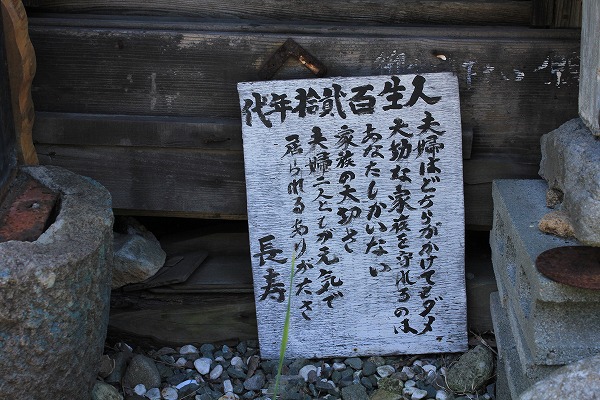 人生百貮拾年代
夫婦はどちらがかけてもダメ
大切な家族を守れるのは
あなたしかいない
家族の大切さ
夫婦二人としが元気で
居られるありがたさ
長寿